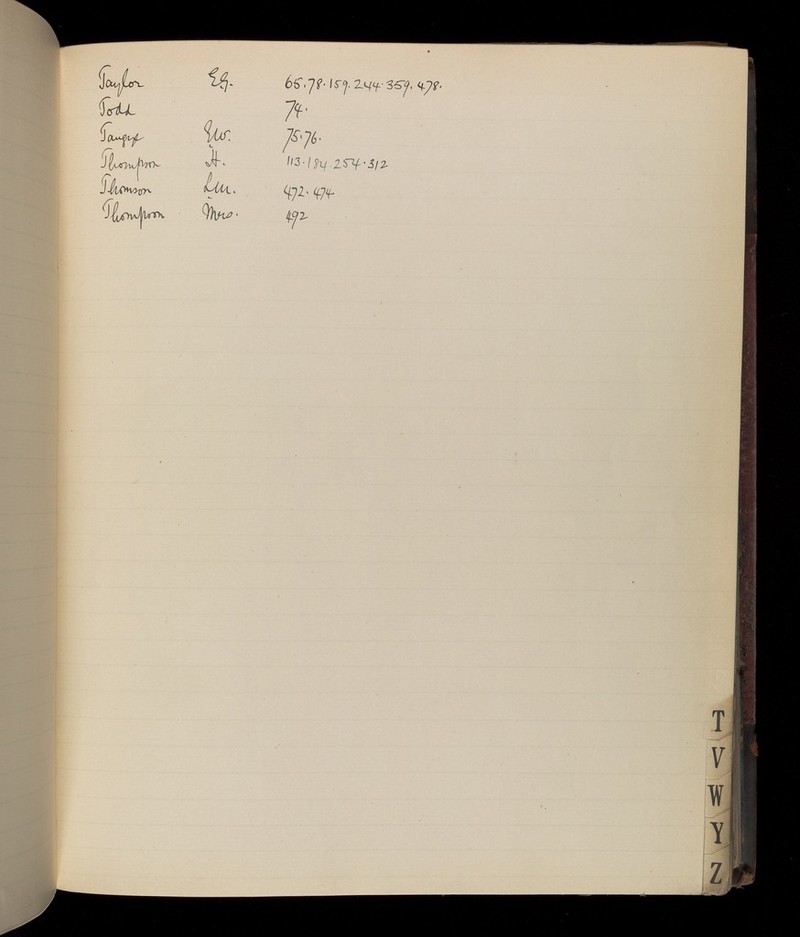 Taylor E.G. 65.78.159.244.359.478.
Todd 74.
Tangye E.W. 75.76.
Thompson H. 113.184.254.312
Thomson 472.474
Thompson Mrs. 492
T
V
W
Y
Z